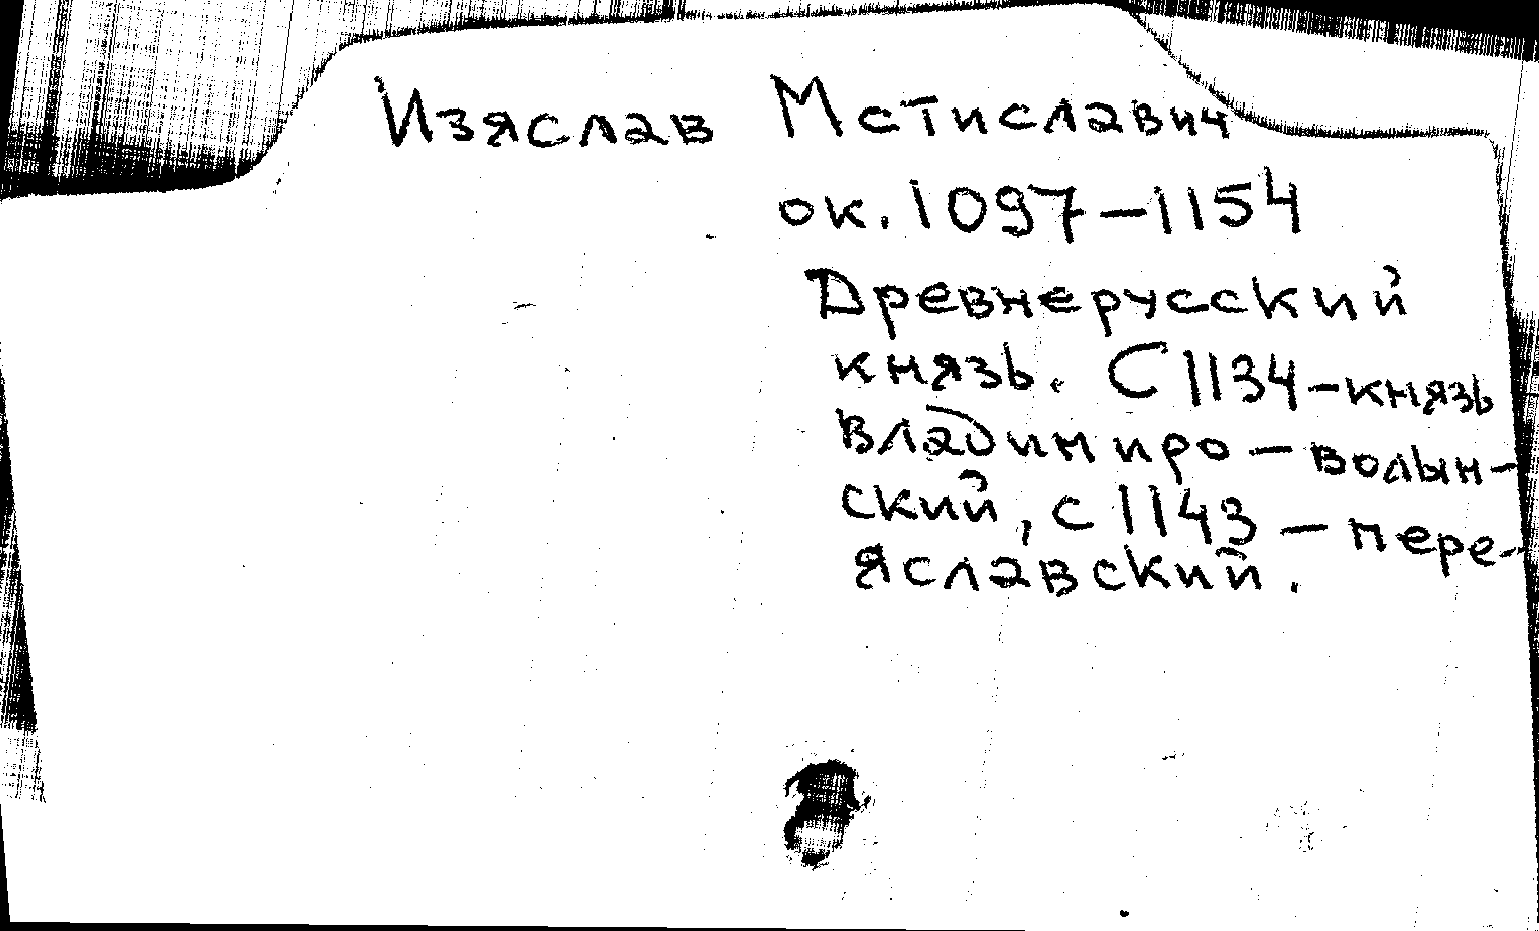 Изяслав Мстиславич
ок. 1097–1154
Древнерусский
князь. С 1134 – князь
владимиро – волын-
ский, с 1143 – пере-
яславский.